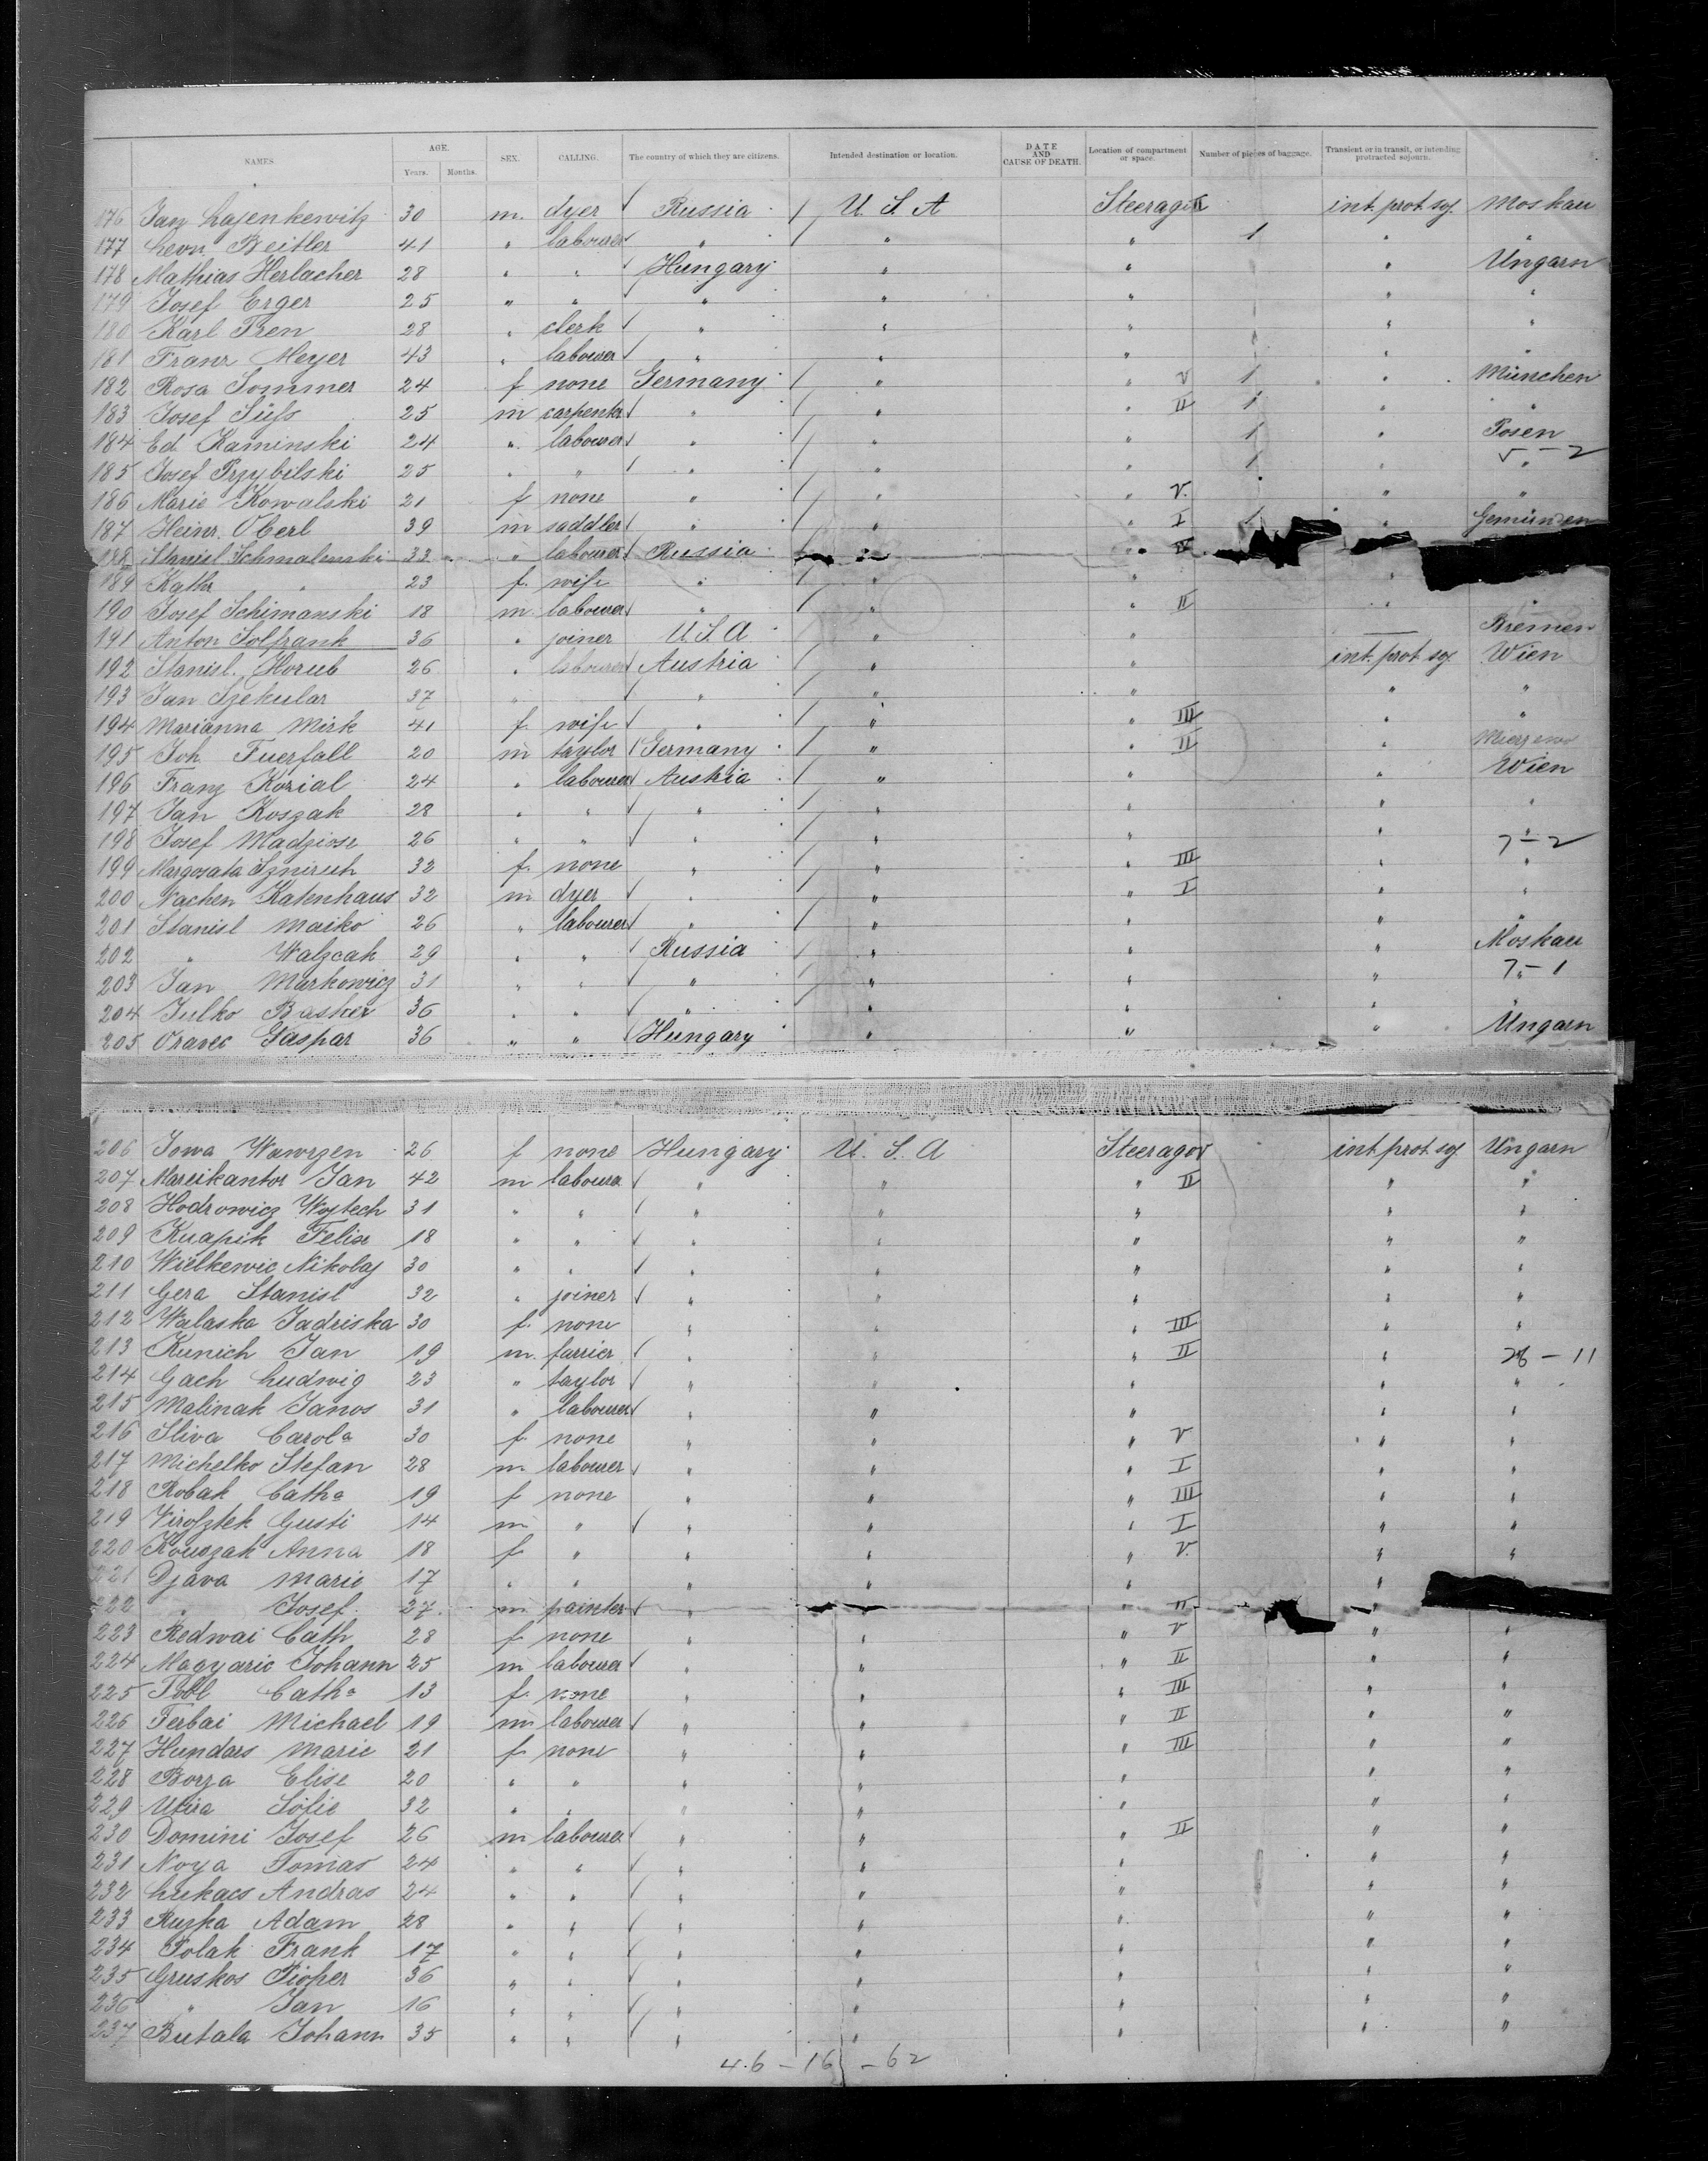 NAMES. AGE. Years. Months. SEX. CALLING. The country of which they are citizens. Intended destination or location. DATE AND CAUSE OF DEATH. Location of compartment or space. Number of pieces of baggage. Transient or in transit, or intending protracted sojourn.
176 Jan Lasenkewitz 30 m. dyer Russia U.S.A Steerage II int. prot. soj. Moskau
177 Leon Beitler 41 " labourer " " " 1 " "
178 Mathias Herlacher 28 " " Hungary " " " Ungarn
179 Josef Erger 25 " " " " " " "
180 Karl Pren 28 " clerk " " " " "
181 Franz Meyer 43 " labourer " " " " "
182 Rosa Sommer 24 f none Germany " " V 1 " München
183 Josef Süfs 25 m carpenter " " " II 1 " "
184 Ed Kaminski 24 " labourer " " " 1 " Posen
185 Josef Przybilski 25 " " " " " 1 " " 5-2
186 Marie Kowalski 21 f none " " " V. " "
187 Heinr. Oberl 39 m saddler " " " I 1 " Gemünden
188 Stanisl Schmalenski 33 " labourer Russia " " IV
189 Kath " 23 f. wife " " " "
190 Josef Schimanski 18 m. labourer " " " II " "
191 Anton Solfrank 36 " joiner U.S.A " " — Bremen
192 Stanisl. Horub 26 " labourer Austria " " int. prot. soj. Wien
193 Jan Szekular 37 " " " " " " "
194 Marianna Mirk 41 f. wife " " " III " "
195 Joh Fuerfall 20 m taylor Germany " " II "
196 Franz Kozial 24 " labourer Austria " " " Wien
197 Jan Koszak 28 " " " " " " "
198 Josef Madziose 26 " " " " " " " 7-2
199 Margosata 32 f. none " " " III " "
200 Nachen Katenhaus 32 m dyer " " " I " "
201 Stanisl Maiko 26 " labourer " " " " "
202 " Walzcak 29 " " Russia " " " Moskau
203 Jan Markowicz 31 " " " " " " " 7-1
204 Julko Basker 36 " " " " " " "
205 Oravec Gaspar 36 " " Hungary " " " Ungarn
206 Jowa Wawrzen 26 f none Hungary U.S.A Steerage V int. prot. soj. Ungarn
207 Mareikantor Jan 42 m labourer " " " II " "
208 Hodrowicz Wojtech 31 " " " " " " "
209 Knapik Felix 18 " " " " " " "
210 Wielkewic Nikolaj 30 " " " " " " "
211 Gera Stanisl 32 " joiner " " " " "
212 Walaska Jadriska 30 f. none " " " III " "
213 Kunich Jan 19 m. farrier " " " II " 28-11
214 Gach Ludwig 23 " taylor " " " " "
215 Malinak Janos 31 " labourer " " " " "
216 Sliva Carola 30 f. none " " " V " "
217 Michelko Stefan 28 m labourer " " " I " "
218 Robak Catha 19 f none " " " III " "
219 Gusti 14 m " " " " I " "
220 Kouszak Anna 18 f " " " " V. " "
221 Djava Marie 17 " " " " " "
222 " Josef 27 m painter " " II "
223 Redwai Cath 28 f none " " " V " "
224 Magyaric Johann 25 m labourer " " " II " "
225 Pobl Catha 13 f. none " " " III " "
226 Ferbai Michael 19 m labourer " " " II " "
227 Hundars Marie 21 f none " " " III " "
228 Borza Elise 20 " " " " " " "
229 Utira Sofie 32 " " " " " " "
230 Domini Josef 26 m labourer " " " II " "
231 Noya Tomas 24 " " " " " " "
232 Lukacs Andras 24 " " " " " " "
233 Ruzka Adam 28 " " " " " " "
234 Polak Frank 17 " " " " " " "
235 Gruskos 36 " " " " " " "
236 " Jan 16 " " " " " " "
237 Butala Johann 35 " " " " " " "
46-16-62